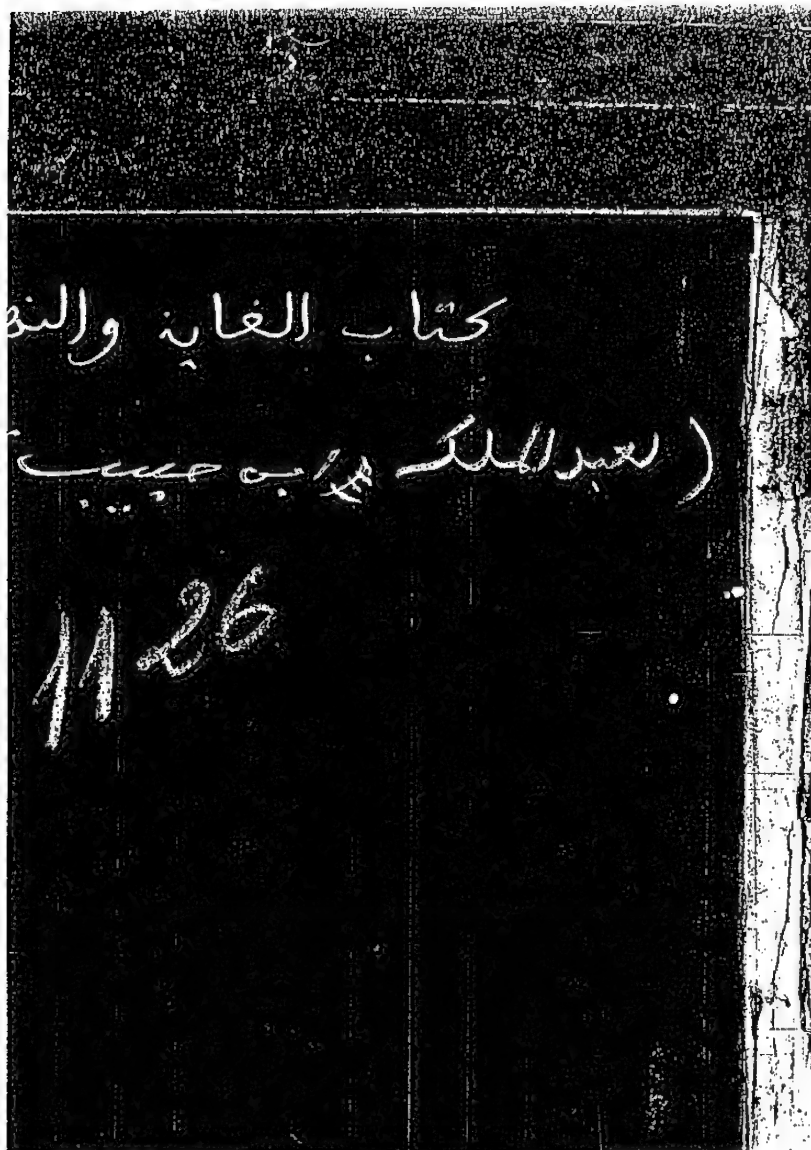 كتاب الغاية والنه
(لعبد الملك بن حبيب
1126